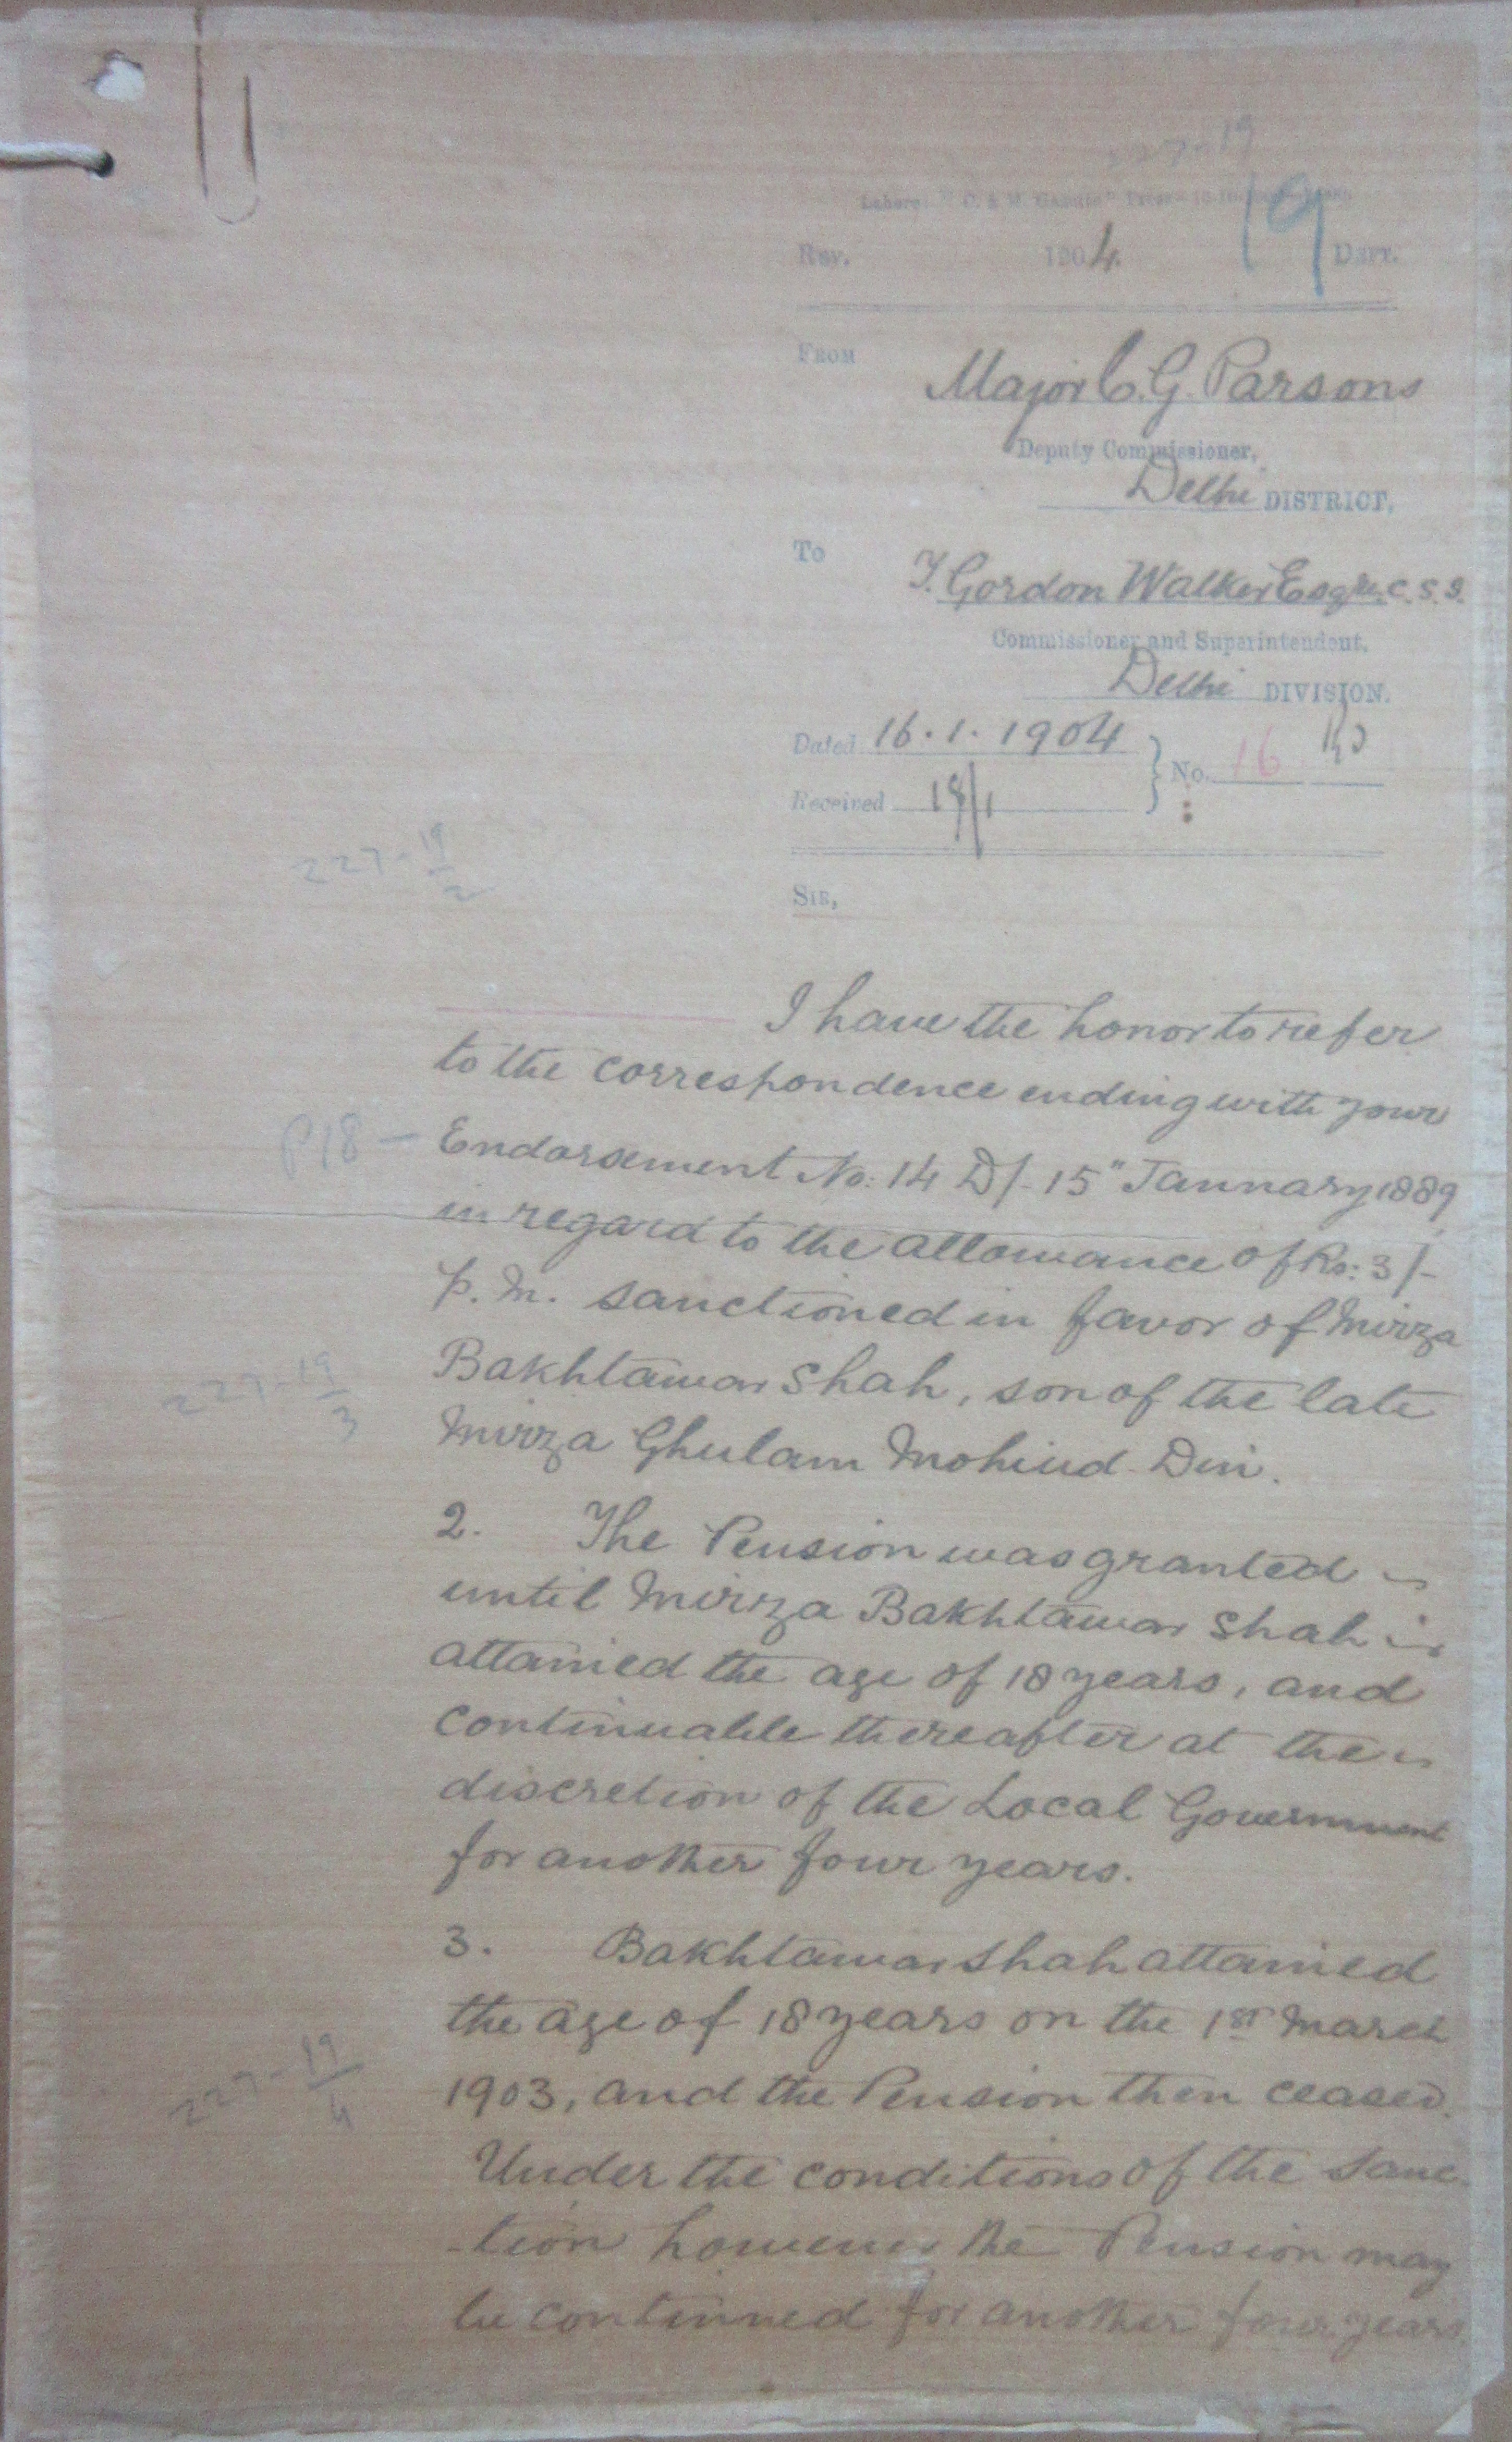 227-19
Lahore: "C. & M. Gazette" Press
Rev. 1904. 19 Dept.
From
Major C. G. Parsons
Deputy Commissioner,
Delhi DISTRICT,
To
T. Gordon Walker Esqre. C.S.I.
Commissioner and Superintendent,
Delhi DIVISION.
Dated 16.1.1904
No. 16
Received 18/1
227-19/2
Sir,
I have the honor to refer
to the correspondence ending with your
P18 - Endorsement No: 14 D/- 15" January 1889
in regard to the allowance of Rs: 3/-
p.m. sanctioned in favor of Mirza
227-19/3
Bakhtawar Shah, son of the late
Mirza Ghulam Mohiud-Din.
2. The Pension was granted
until Mirza Bakhtawar Shah
attained the age of 18 years, and
continuable thereafter at the
discretion of the Local Government
for another four years.
3. Bakhtawar Shah attained
the age of 18 years on the 1st March
227-19/4
1903, and the Pension then ceased.
Under the conditions of the sanc-
-tion however the Pension may
be continued for another four years.